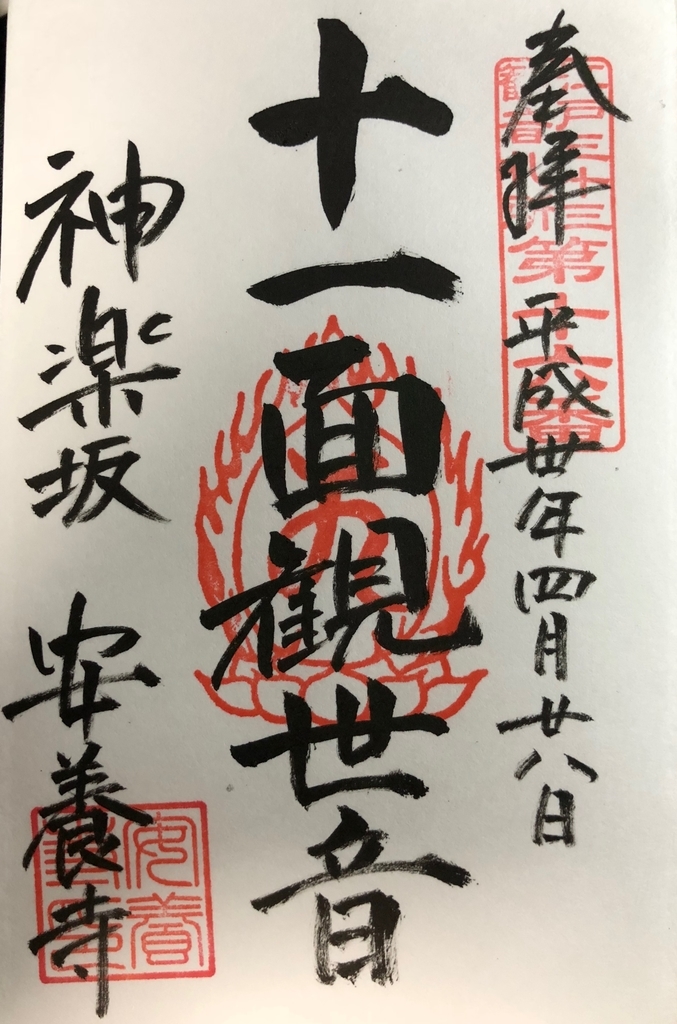 奉拝
平成丗年四月廿八日
十一面観世音
神楽坂
安養寺